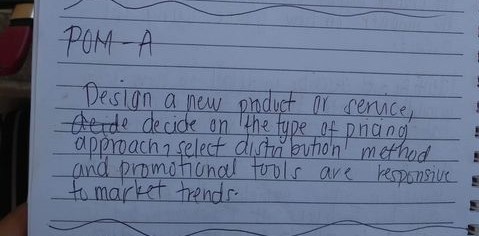 POM-A
Design a new product or service,
decide decide on the type of pricing
approach, select distribution method
and promotional tools are responsive
to market trends.